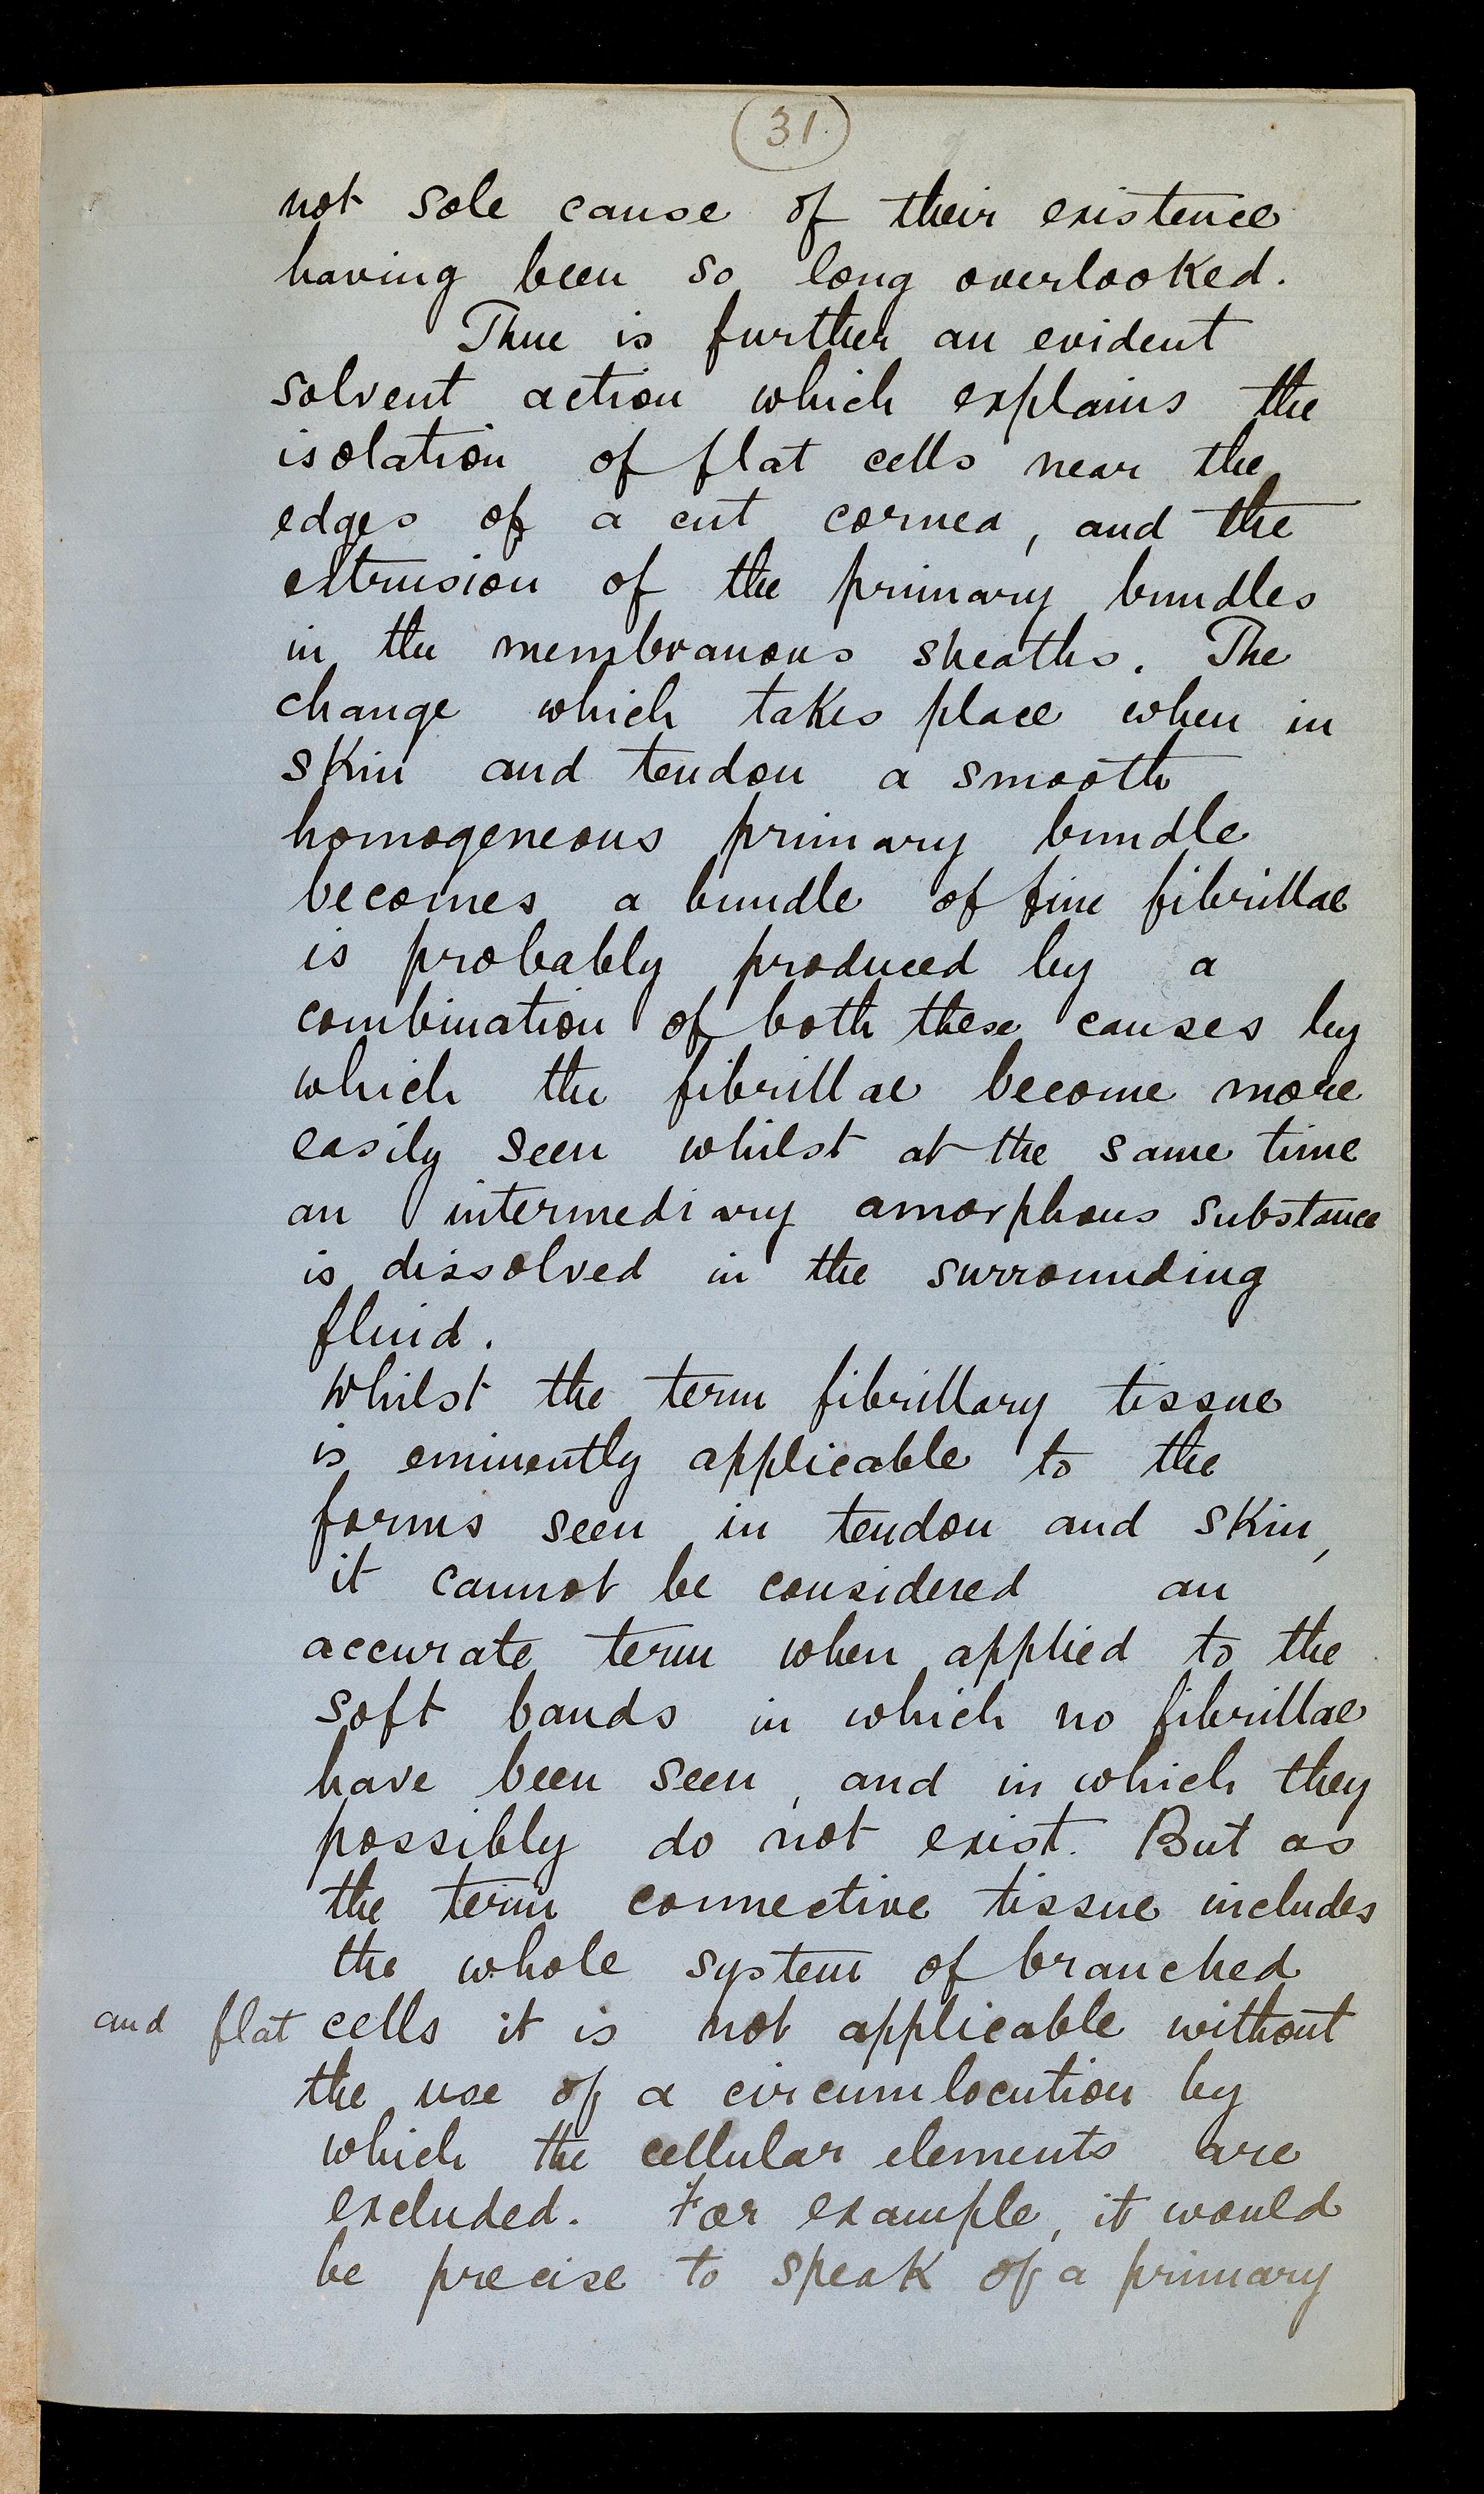 31.
not sole cause of their existence
having been so long overlooked.
There is further an evident
solvent action which explains the
isolation of flat cells near the
edges of a cut cornea, and the
extrusion of the primary bundles
in the membranous sheaths. The
change which takes place when in
skin and tendon a smooth
homogeneous primary bundle
becomes a bundle of fine fibrillae
is probably produced by a
combination of both these causes by
which the fibrillae become more
easily seen whilst at the same time
an intermediary amorphous substance
is dissolved in the surrounding
fluid.
Whilst the term fibrillary tissue
is eminently applicable to the
forms seen in tendon and skin,
it cannot be considered an
accurate term when applied to the
soft bands in which no fibrillae
have been seen, and in which they
possibly do not exist. But as
the term connective tissue includes
the whole system of branched
and flat cells it is not applicable without
the use of a circumlocution by
which the cellular elements are
excluded. For example, it would
be precise to speak of a primary